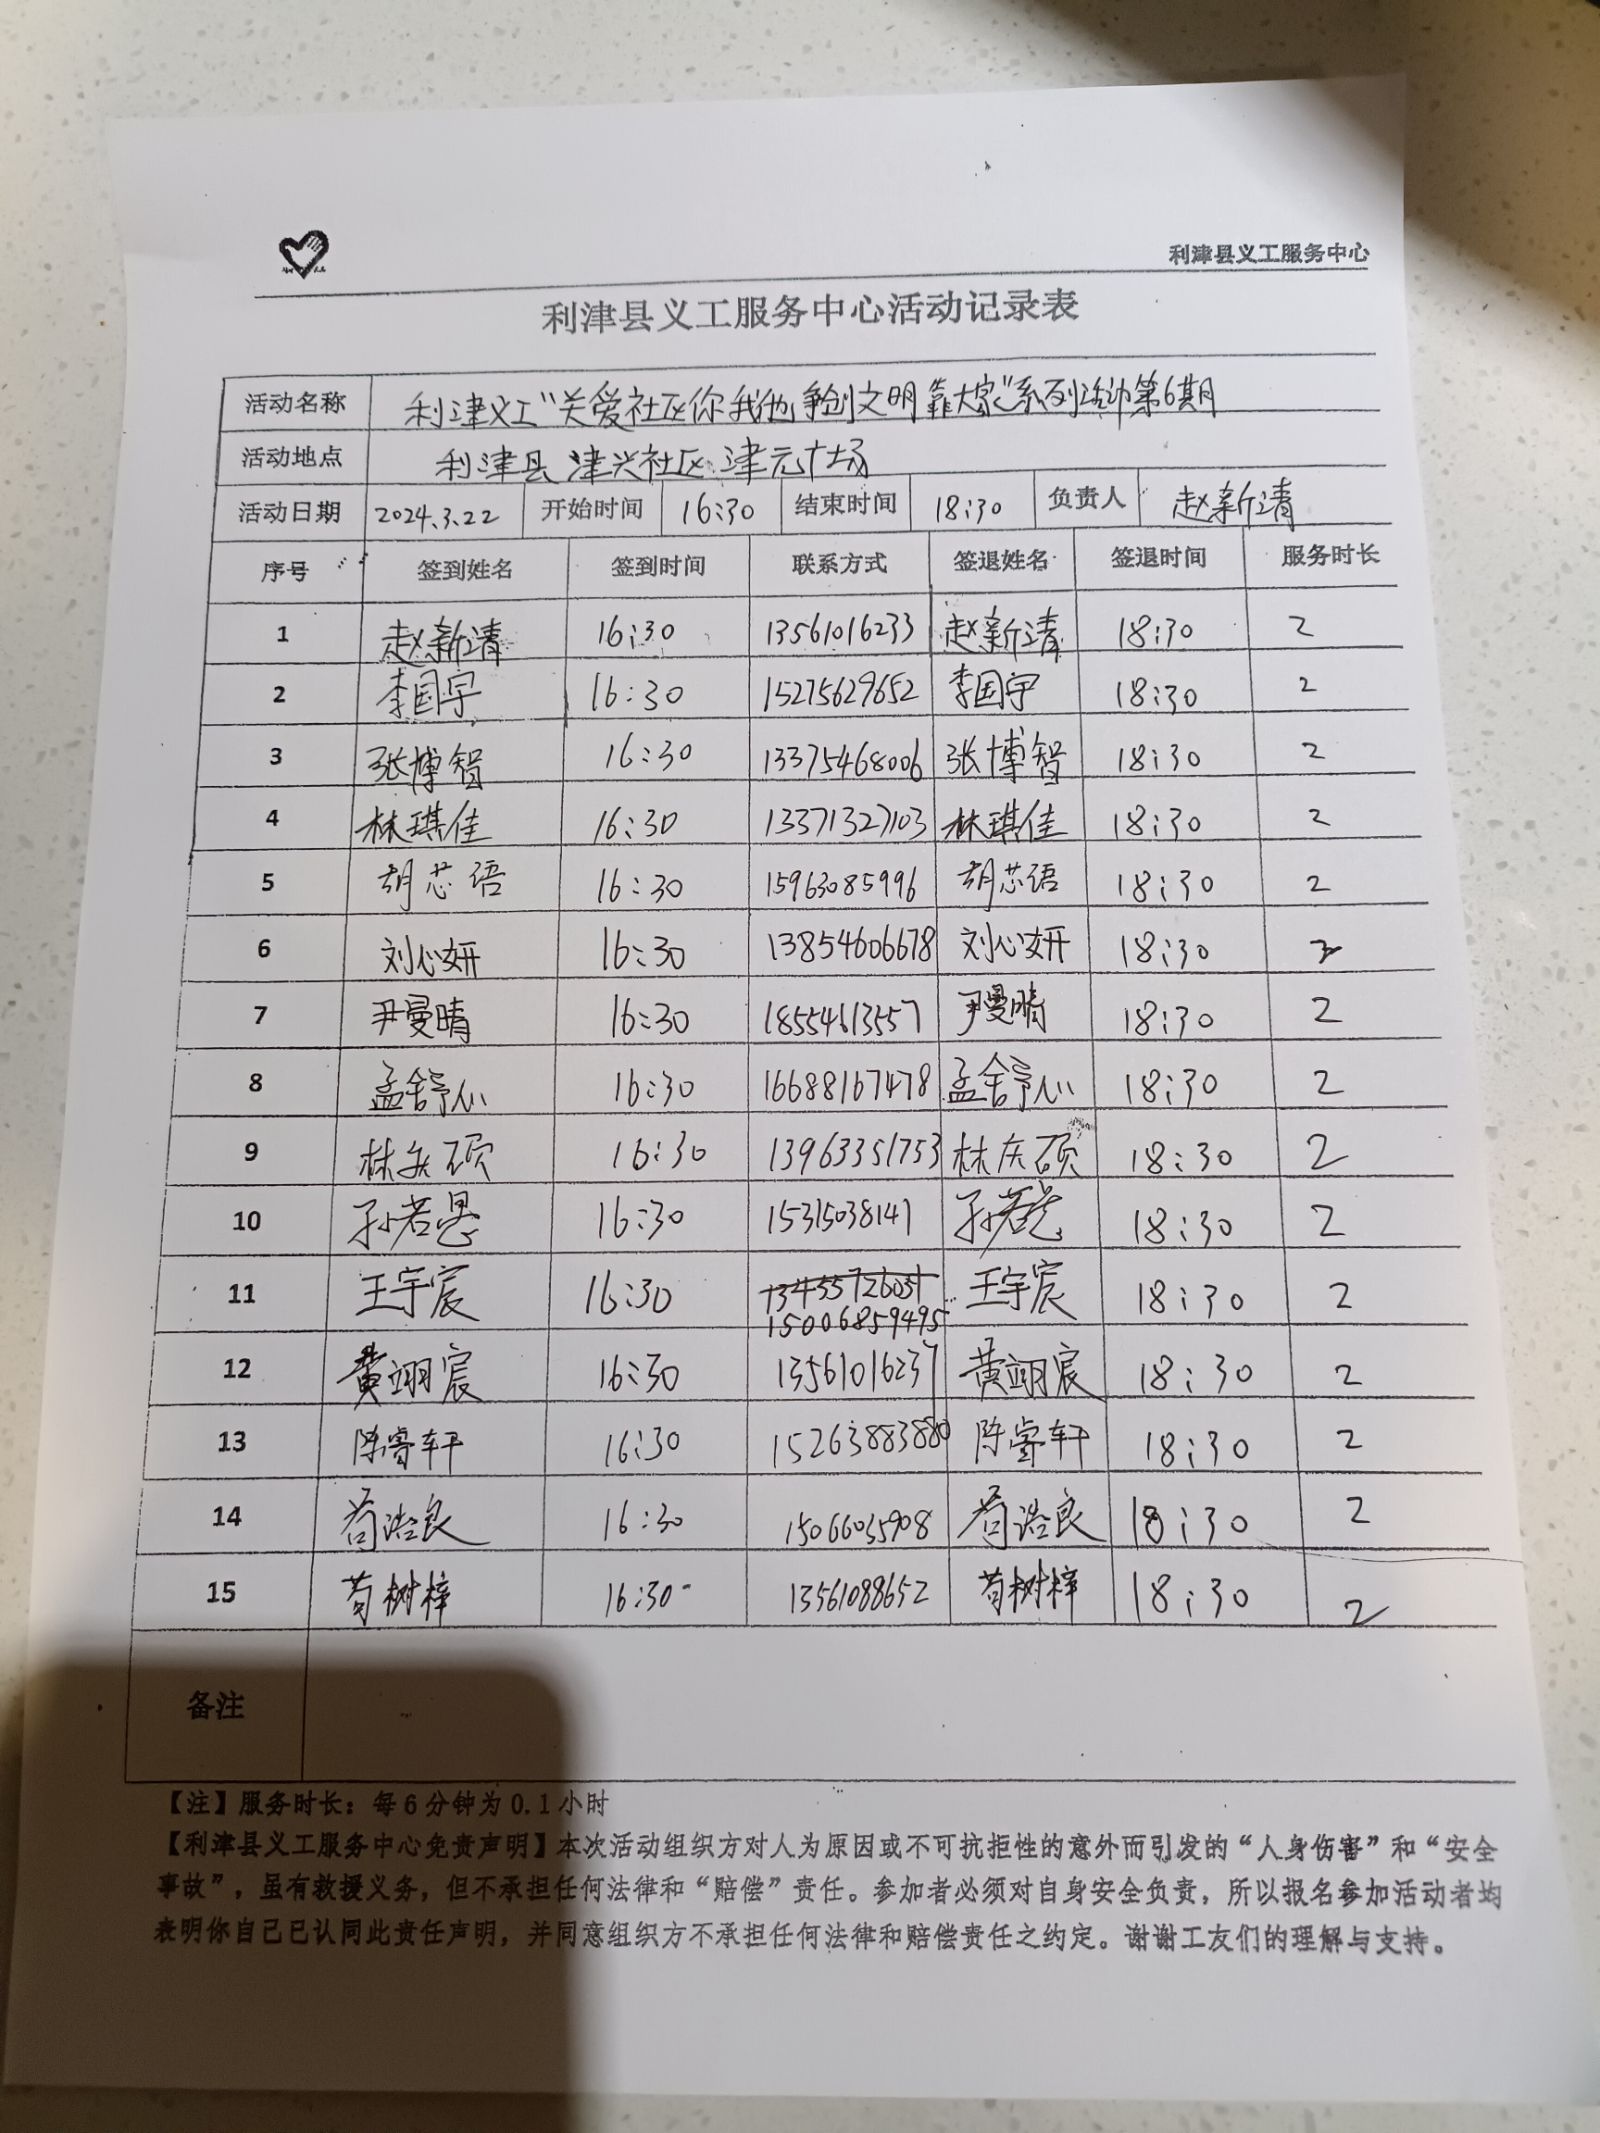 利津县义工服务中心
利津县义工服务中心活动记录表
活动名称 利津义工“关爱社区你我他,争创文明靠大家”系列活动第6期
活动地点 利津县津兴社区津元广场
活动日期 2024.3.22 开始时间 16:30 结束时间 18:30 负责人 赵新清
序号 签到姓名 签到时间 联系方式 签退姓名 签退时间 服务时长
1 赵新清 16:30 13561016233 赵新清 18:30 2
2 李国宇 16:30 15275629652 李国宇 18:30 2
3 张博智 16:30 13375468006 张博智 18:30 2
4 林琪佳 16:30 13371327103 林琪佳 18:30 2
5 胡芯语 16:30 15963085996 胡芯语 18:30 2
6 刘心妍 16:30 13854606678 刘心妍 18:30 2
7 尹曼晴 16:30 18554613557 尹曼晴 18:30 2
8 孟舒心 16:30 16688167478 孟舒心 18:30 2
9 林庆硕 16:30 13963351753 林庆硕 18:30 2
10 孙若 16:30 15315038141 孙若 18:30 2
11 王宇宸 16:30 13455726051 王宇宸 18:30 2
15006859495
12 黄翊宸 16:30 13561016237 黄翊宸 18:30 2
13 陈睿轩 16:30 15263883880 陈睿轩 18:30 2
14 苟浩良 16:30 15066035908 苟浩良 18:30 2
15 苟树梓 16:30 13561088652 苟树梓 18:30 2
备注
【注】服务时长：每6分钟为0.1小时
【利津县义工服务中心免责声明】本次活动组织方对人为原因或不可抗拒性的意外而引发的“人身伤害”和“安全
事故”，虽有救援义务，但不承担任何法律和“赔偿”责任。参加者必须对自身安全负责，所以报名参加活动者均
表明你自己已认同此责任声明，并同意组织方不承担任何法律和赔偿责任之约定。谢谢工友们的理解与支持。